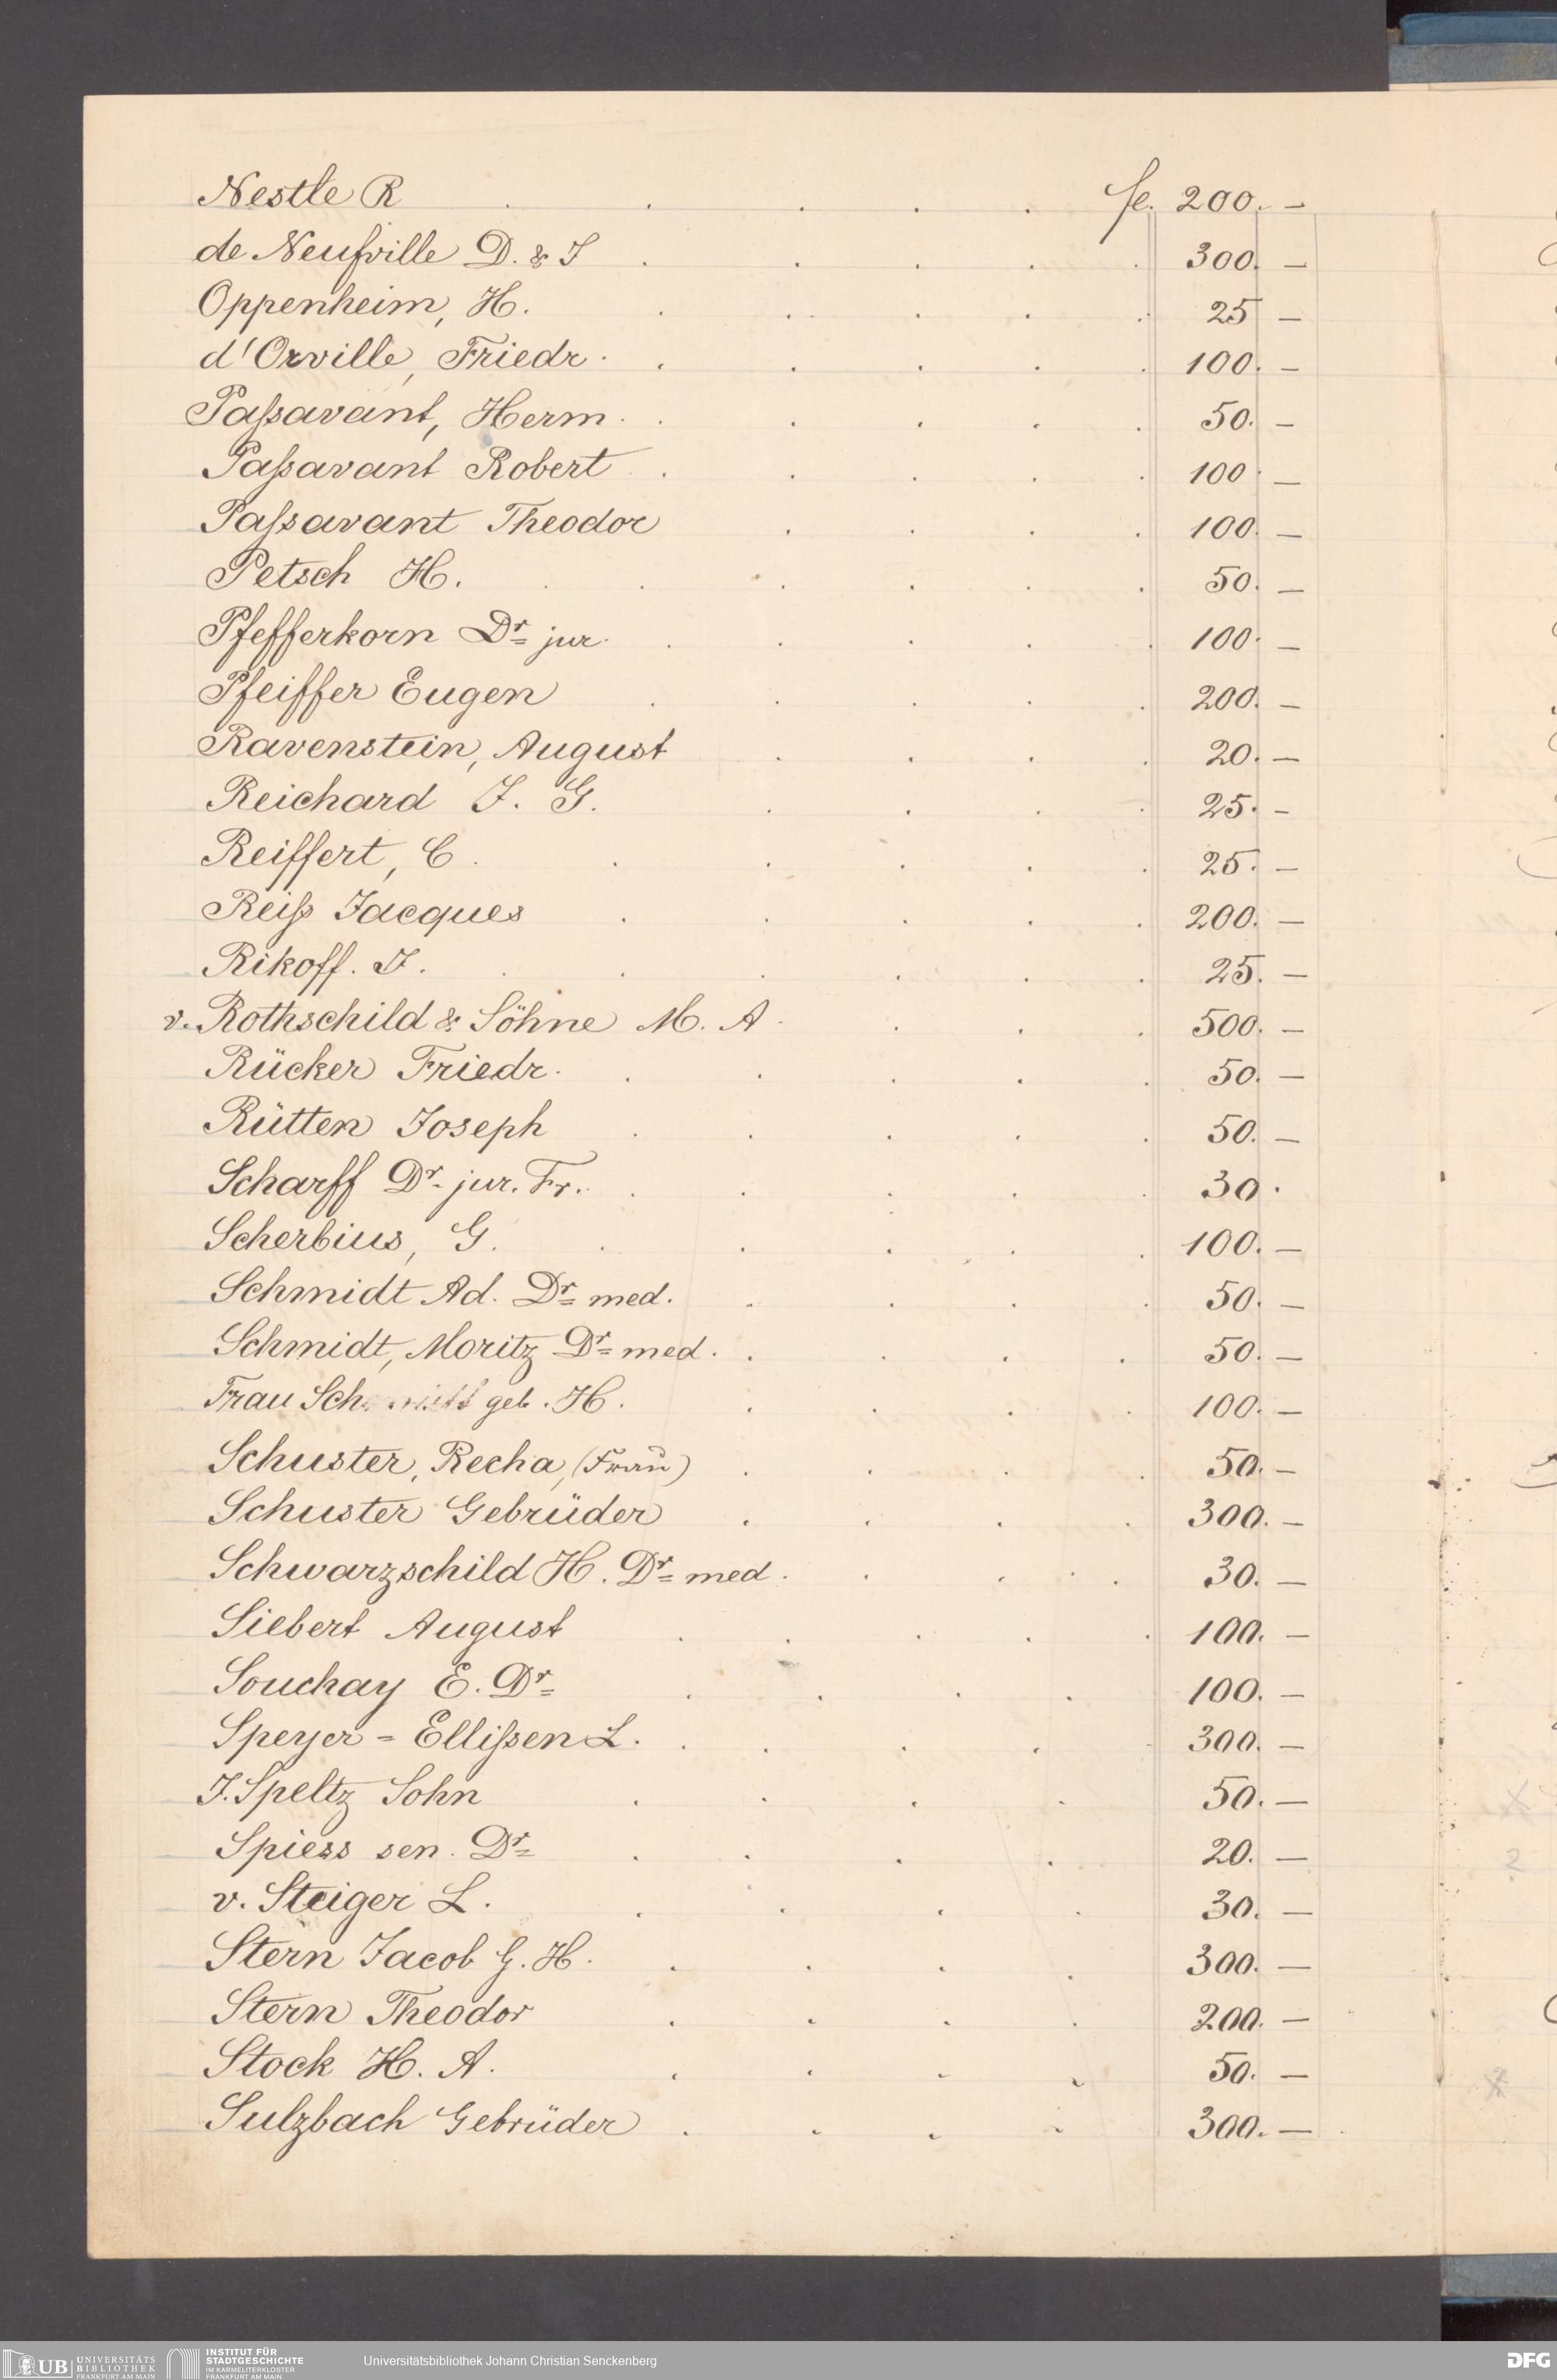 Nestle R . . . . . fl. 200. —
de Neufville D. & J . . . . . 300. —
Oppenheim, H. . . . . . 25 —
d'Orville, Friedr. . . . . . 100. —
Paßavant, Herm. . . . . . 50. —
Paßavant Robert . . . . . 100. —
Paßavant Theodor . . . . 100. —
Petsch H. . . . . . . 50. —
Pfefferkorn Dr jur. . . . . . 100. —
Pfeiffer Eugen . . . . . 200. —
Ravenstein, August . . . . 20. —
Reichard J. G. . . . . 25. —
Reiffert, C. . . . . . 25. —
Reiß Jacques . . . . . 200. —
Rikoff. J. . . . . . . 25. —
v. Rothschild & Söhne M. A. . . . 500. —
Rücker Friedr. . . . . . 50. —
Rütten Joseph . . . . . 50. —
Scharff Dr. jur. Fr. . . . . . 30.
Scherbius, G. . . . . . 100. —
Schmidt Ad. Dr med. . . . . 50. —
Schmidt, Moritz Dr med. . . . . 50. —
Frau geb. H. . . . . 100. —
Schuster, Recha, (Frau) . . . . 50. —
Schuster Gebrüder . . . . 300. —
Schwarzschild H. Dr med. . . . . 30. —
Siebert August . . . . . 100. —
Souchay E. Dr . . . . 100. —
Speyer = Ellißen L. . . . . . 300. —
J. Speltz Sohn . . . . 50. —
Spiess sen. Dr . . . . 20. —
v. Steiger L. . . . . 30. —
Stern Jacob G. H. . . . . 300. —
Stern Theodor . . . . 200. —
Stock H. A. . . . . 50. —
Sulzbach Gebrüder . . . . 300. —
UB UNIVERSITÄTS BIBLIOTHEK FRANKFURT AM MAIN
INSTITUT FÜR STADTGESCHICHTE IM KARMELITERKLOSTER FRANKFURT AM MAIN
Universitätsbibliothek Johann Christian Senckenberg
DFG